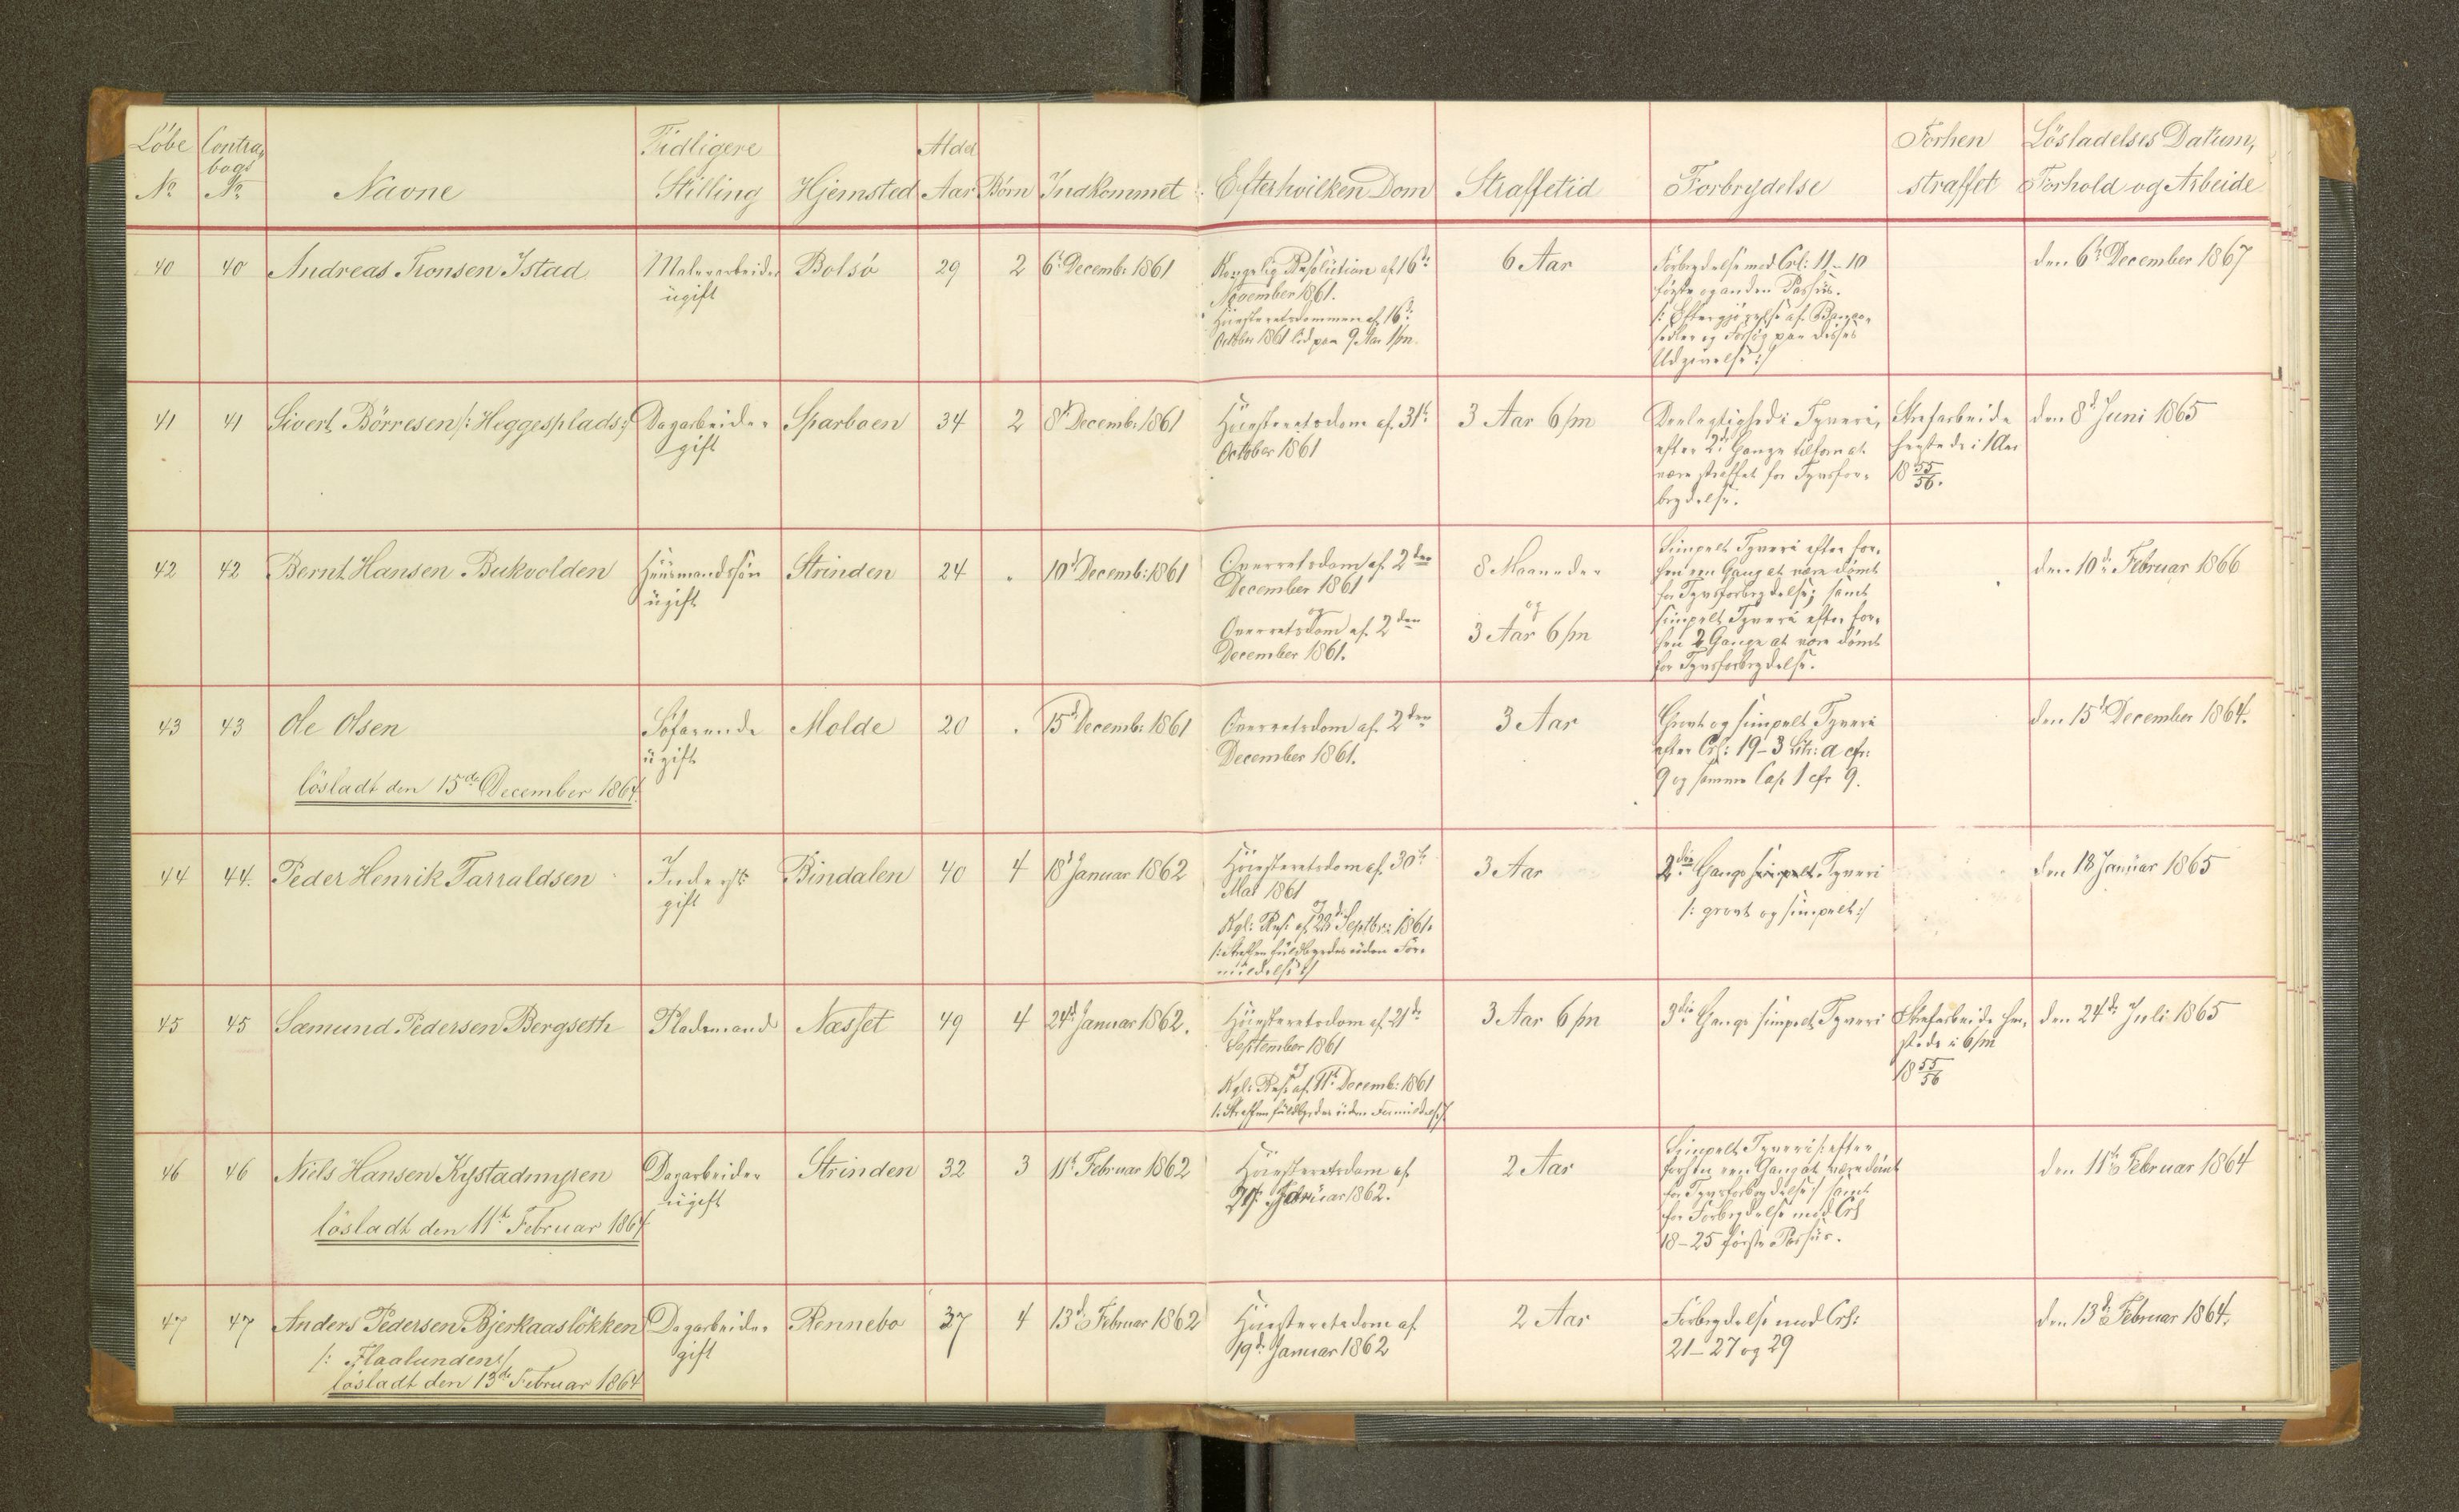 Löbe Contra- Tidligere Alder Forhen Lösladelses Datum,
bogs
No No Navne Stilling Hjemsted Aar Börn Indkommet Efter hvilken Dom Straffetid Forbrydelse straffet Forhold og Arbeide
40 40 Andreas Tronsen Istad Malerarbeider Bolsö 29 2 6te Decemb: 1861 Kongelig Resolution af 16de 6 Aar Forbrydelse mod Crl: 11-10 den 6te December 1867
ugift November 1861. förste og anden Passus.
Höiesteretsdommen af 16de /: Eftergjörelse af Banco-
October 1861 löd paa 9 Aar 1/m. sedler og Forsög paa disses
Udgivelse :/
41 41 Sivert Börresen /: Heggesplads :/ Dagarbeider Sparboen 34 2 8de Decemb: 1861 Höiesteretsdom af 31te 3 Aar 6/m Deelagtighed i Tyveri, Strafarbeide den 8de Juni 1865
gift October 1861 efter 2de Gange tilforn at herstede i 1 Aar
være straffet for Tyvsfor- 18 55/56.
brydelse.
42 42 Bernt Hansen Bukvolden Huusmandssön Strinden 24 . 10de Decemb: 1861 Overretsdom af 2den 8 Maaneder Simpelt Tyveri efter for- den 10de Februar 1866
ugift December 1861 hen een Gang at være dömt
og og for Tyvsforbrydelse; samt
Overretsdom af 2den 3 Aar 6/m simpelt Tyveri efter for-
December 1861. hen 2 Gange at være dömt
for Tyvsforbrydelse.
43 43 Ole Olsen Söfarende Molde 20 . 15de Decemb: 1861 Overretsdom af 2den 3 Aar Grovt og simpelt Tyveri den 15de December 1864.
ugift December 1861. efter Crl: 19-3 Litr: a cfr:
lösladt den 15de December 1864. 9 og samme Cap 1 cfr 9.
44 44. Peder Henrik Tarraldsen Inderst Bindalen 40 4 18de Januar 1862 Höiesteretsdom af 30te 3 Aar 2den Gangs simpelt Tyveri den 18 Januar 1865
gift Mai 1861 /: grovt og simpelt :/
og
Kgl: Res: af 23de Septbr: 1861.
/: Straffen fuldbyrdes uden For-
mildelse :/
45 45 Sæmund Pedersen Bergseth Pladsmand Næsset 49 4 24de Januar 1862. Höiesteretsdom af 21de 3 Aar 6/m 3die Gangs simpelt Tyveri Strafarbeide her- den 24de Juli 1865
September 1861 stede i 6/m
og 18 55/56
Kgl: Res: af 11te Decemb: 1861
/: Straffen fuldbyrdes uden Formildelse :/
46 46 Niels Hansen Kystadmyren Dagarbeider Strinden 32 3 11te Februar 1862 Höiesteretsdom af 2 Aar Simpelt Tyveri /: efter den 11te Februar 1864
ugift Januar 1862. forhen een Gang at være dömt
lösladt den 11te Februar 1864 for Tyvsforbrydelse :/ samt
for Forbrydelse mod Crl
18-25 förste Passus.
47 47 Anders Pedersen Bjerkaaslökken Dagarbeider Rennebo 37 4 13de Februar 1862 Höiesteretsdom af 2 Aar Forbrydelse mod Crl: den 13de Februar 1864.
/: Flaalunden :/ gift 19de Januar 1862 21-27 og 29
lösladt den 13de Februar 1864